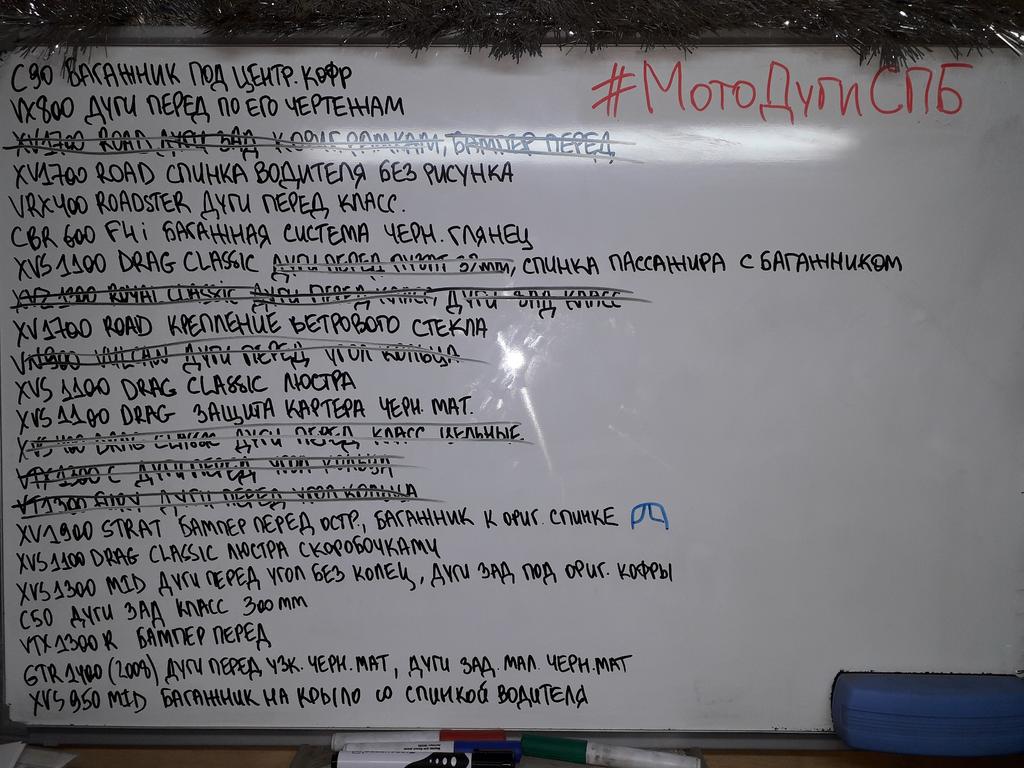 #МотоДугиСПБ
C90 БАГАЖНИК ПОД ЦЕНТР. КОФР
VX800 ДУГИ ПЕРЕД ПО ЕГО ЧЕРТЕЖАМ
XV1700 ROAD ДУГИ ЗАД К ОРИГ РАМКАМ, БАМПЕР ПЕРЕД
XV1700 ROAD СПИНКА ВОДИТЕЛЯ БЕЗ РИСУНКА
VRX400 ROADSTER ДУГИ ПЕРЕД КЛАСС.
CBR 600 F4i БАГАЖНАЯ СИСТЕМА ЧЕРН. ГЛЯНЕЦ
XVS 1100 DRAG CLASSIC ДУГИ ПЕРЕД 32mm, СПИНКА ПАССАЖИРА С БАГАЖНИКОМ
ROYAL CLASSIC ДУГИ ПЕРЕД КЛАСС, ДУГИ ЗАД КЛАСС
XV1700 ROAD КРЕПЛЕНИЕ ВЕТРОВОГО СТЕКЛА
VN900 VULCAN ДУГИ ПЕРЕД УГОЛ КОЛЬЦА
XVS 1100 DRAG CLASSIC ЛЮСТРА
XVS 1100 DRAG ЗАЩИТА КАРТЕРА ЧЕРН. МАТ.
XVS 400 DRAG CLASSIC ДУГИ ПЕРЕД КЛАСС ЦЕЛЬНЫЕ.
VTX1300 C ДУГИ ПЕРЕД УГОЛ КОЛЬЦА
VT1300 ДУГИ ПЕРЕД УГОЛ КОЛЬЦА
XV1900 STRAT БАМПЕР ПЕРЕД ОСТР., БАГАЖНИК К ОРИГ. СПИНКЕ
XVS 1100 DRAG CLASSIC ЛЮСТРА СКОРОБОЧКАМИ
XVS 1300 MID ДУГИ ПЕРЕД УГОЛ БЕЗ КОЛЕЦ, ДУГИ ЗАД ПОД ОРИГ. КОФРЫ
C50 ДУГИ ЗАД КЛАСС 300mm
VTX1300R БАМПЕР ПЕРЕД
GTR 1400 (2008) ДУГИ ПЕРЕД УЗК. ЧЕРН. МАТ, ДУГИ ЗАД. МАЛ. ЧЕРН. МАТ
XVS 950 MID БАГАЖНИК НА КРЫЛО СО СПИНКОЙ ВОДИТЕЛЯ